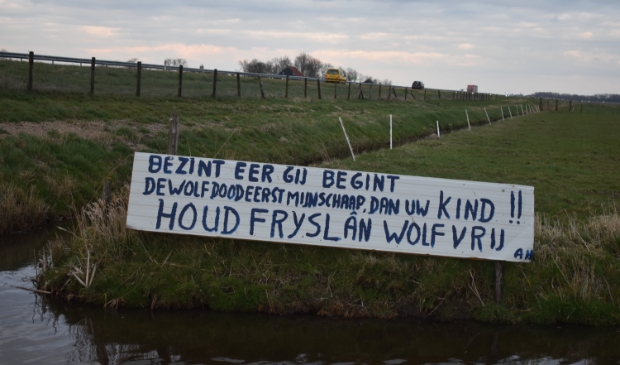 BEZINT EER GIJ BEGINT
DE WOLF DOOD EERST MIJN SCHAAP, DAN UW KIND !!
HOUD FRYSLÂN WOLFVRIJ
AH